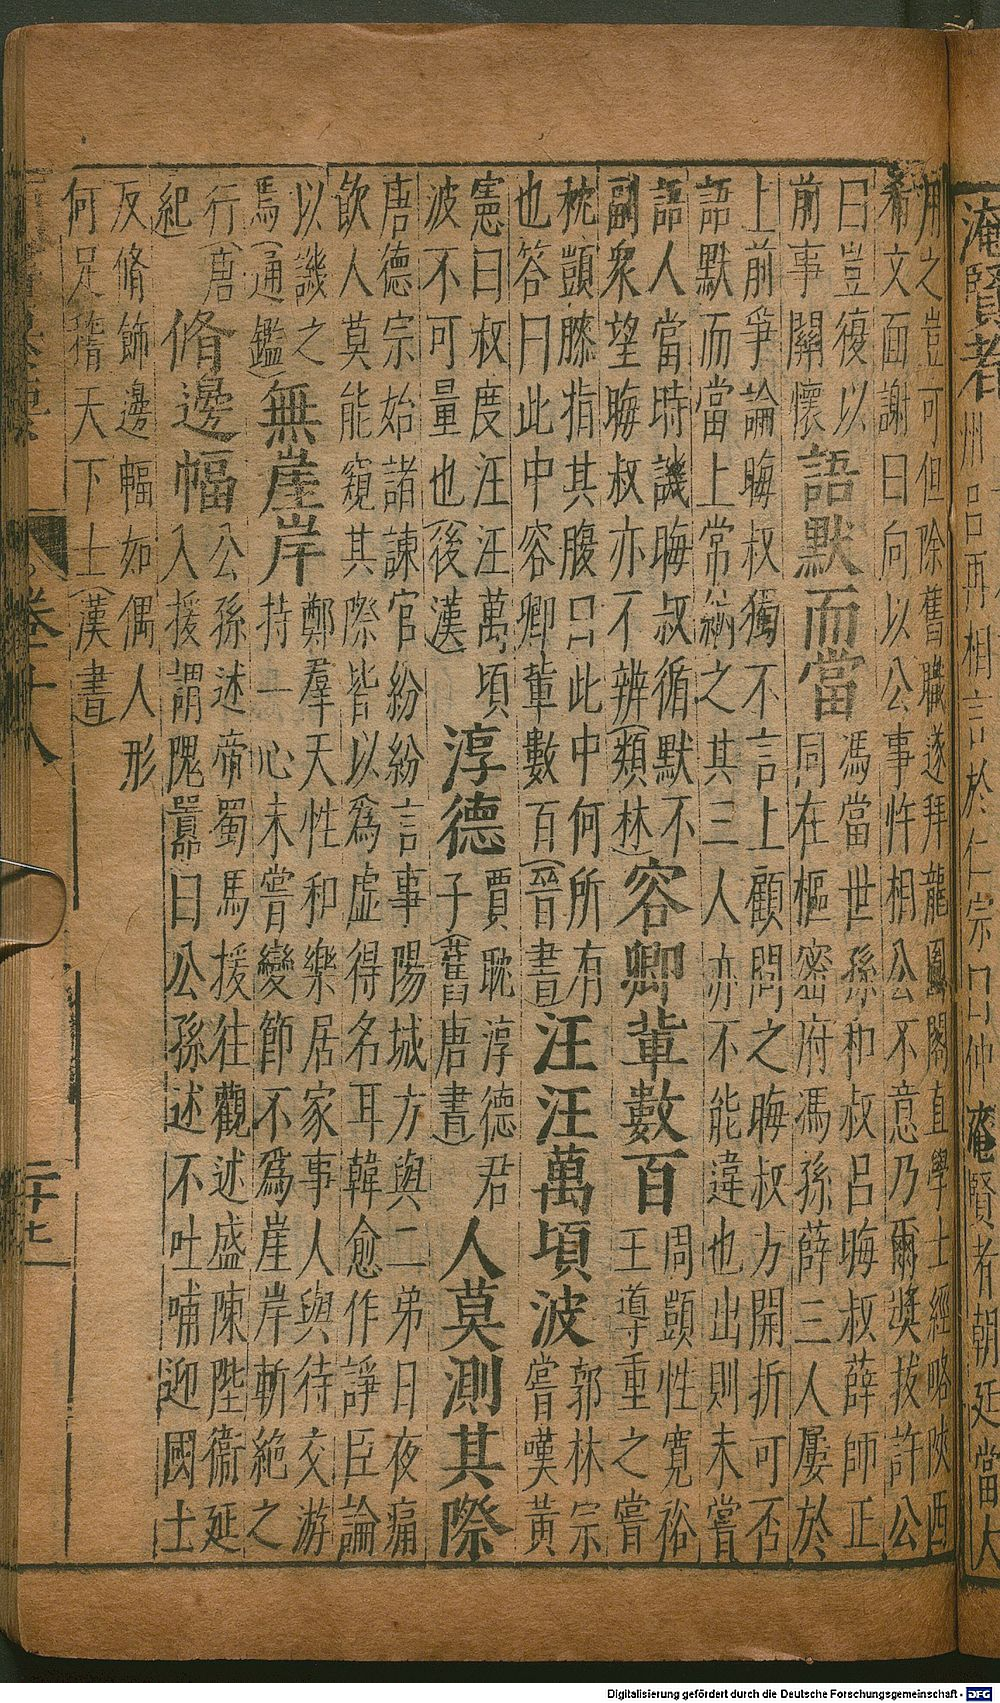 淹賢者
州呂再相言於仁宗曰仲淹賢者朝廷當大
用之豈可但除舊職遂拜龍圖閣直學士經略陝西
希文面謝曰向以公事忤相公不意乃爾獎拔許公
曰豈復以
前事關懷
語默而當
馮當世孫和叔呂晦叔薛師正
同在樞密府馮孫薛三人屢於
上前爭論晦叔獨不言上顧問之晦叔方開折可否
語默而當上常納之其三人亦不能違也出則未嘗
語人當時譏晦叔循默不
副衆望晦叔亦不辨(類林)
容卿輩數百
周顗性寛裕
王導重之嘗
枕顗膝指其腹曰此中何所有
也答曰此中容卿輩數百(晉書)
汪汪萬頃波
郭林宗
嘗嘆黃
憲曰叔度汪汪萬頃
波不可量也(後漢)
淳德
賈耽淳德君
子(舊唐書)
人莫測其際
唐德宗始諸諫官紛紛言事陽城方與二弟日夜痛
飲人莫能窺其際皆以爲虛得名耳韓愈作諍臣論
以譏之
焉(通鑑)
無崖岸
鄭羣天性和樂居家事人與待交游
持一心未嘗變節不爲崖岸斬絶之
行(唐
紀
脩邊幅
公孫述帝蜀馬援往觀述盛陳陛衞延
入援謂隗囂曰公孫述不吐哺迎國士
反脩飾邊幅如偶人形
何足稽天下士(漢書)
卷十八
二十七
Digitalisierung gefördert durch die Deutsche Forschungsgemeinschaft - DFG